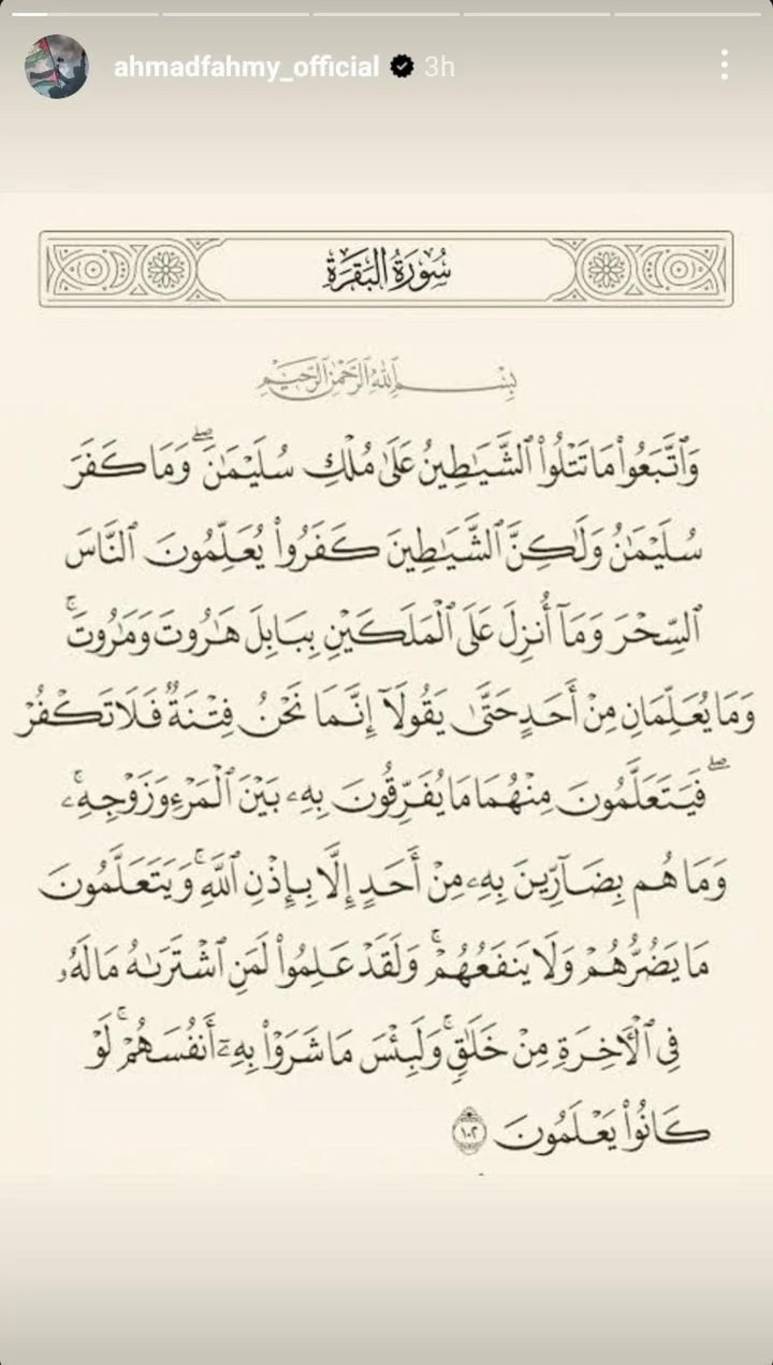 ahmadfahmy_official 3h
سُورَةُ البَقَرَةِ
بِسْمِ اللَّهِ الرَّحْمَٰنِ الرَّحِيمِ
وَٱتَّبَعُوا۟ مَا تَتْلُوا۟ ٱلشَّيَـٰطِينُ عَلَىٰ مُلْكِ سُلَيْمَـٰنَ ۖ وَمَا كَفَرَ
سُلَيْمَـٰنُ وَلَـٰكِنَّ ٱلشَّيَـٰطِينَ كَفَرُوا۟ يُعَلِّمُونَ ٱلنَّاسَ
ٱلسِّحْرَ وَمَآ أُنزِلَ عَلَى ٱلْمَلَكَيْنِ بِبَابِلَ هَـٰرُوتَ وَمَـٰرُوتَ ۚ
وَمَا يُعَلِّمَانِ مِنْ أَحَدٍ حَتَّىٰ يَقُولَآ إِنَّمَا نَحْنُ فِتْنَةٌ فَلَا تَكْفُرْ
ۖ فَيَتَعَلَّمُونَ مِنْهُمَا مَا يُفَرِّقُونَ بِهِۦ بَيْنَ ٱلْمَرْءِ وَزَوْجِهِۦ ۚ
وَمَا هُم بِضَآرِّينَ بِهِۦ مِنْ أَحَدٍ إِلَّا بِإِذْنِ ٱللَّهِ ۚ وَيَتَعَلَّمُونَ
مَا يَضُرُّهُمْ وَلَا يَنفَعُهُمْ ۚ وَلَقَدْ عَلِمُوا۟ لَمَنِ ٱشْتَرَىٰهُ مَا لَهُۥ
فِى ٱلْـَٔاخِرَةِ مِنْ خَلَـٰقٍ ۚ وَلَبِئْسَ مَا شَرَوْا۟ بِهِۦٓ أَنفُسَهُمْ ۚ لَوْ
كَانُوا۟ يَعْلَمُونَ ١٠٢